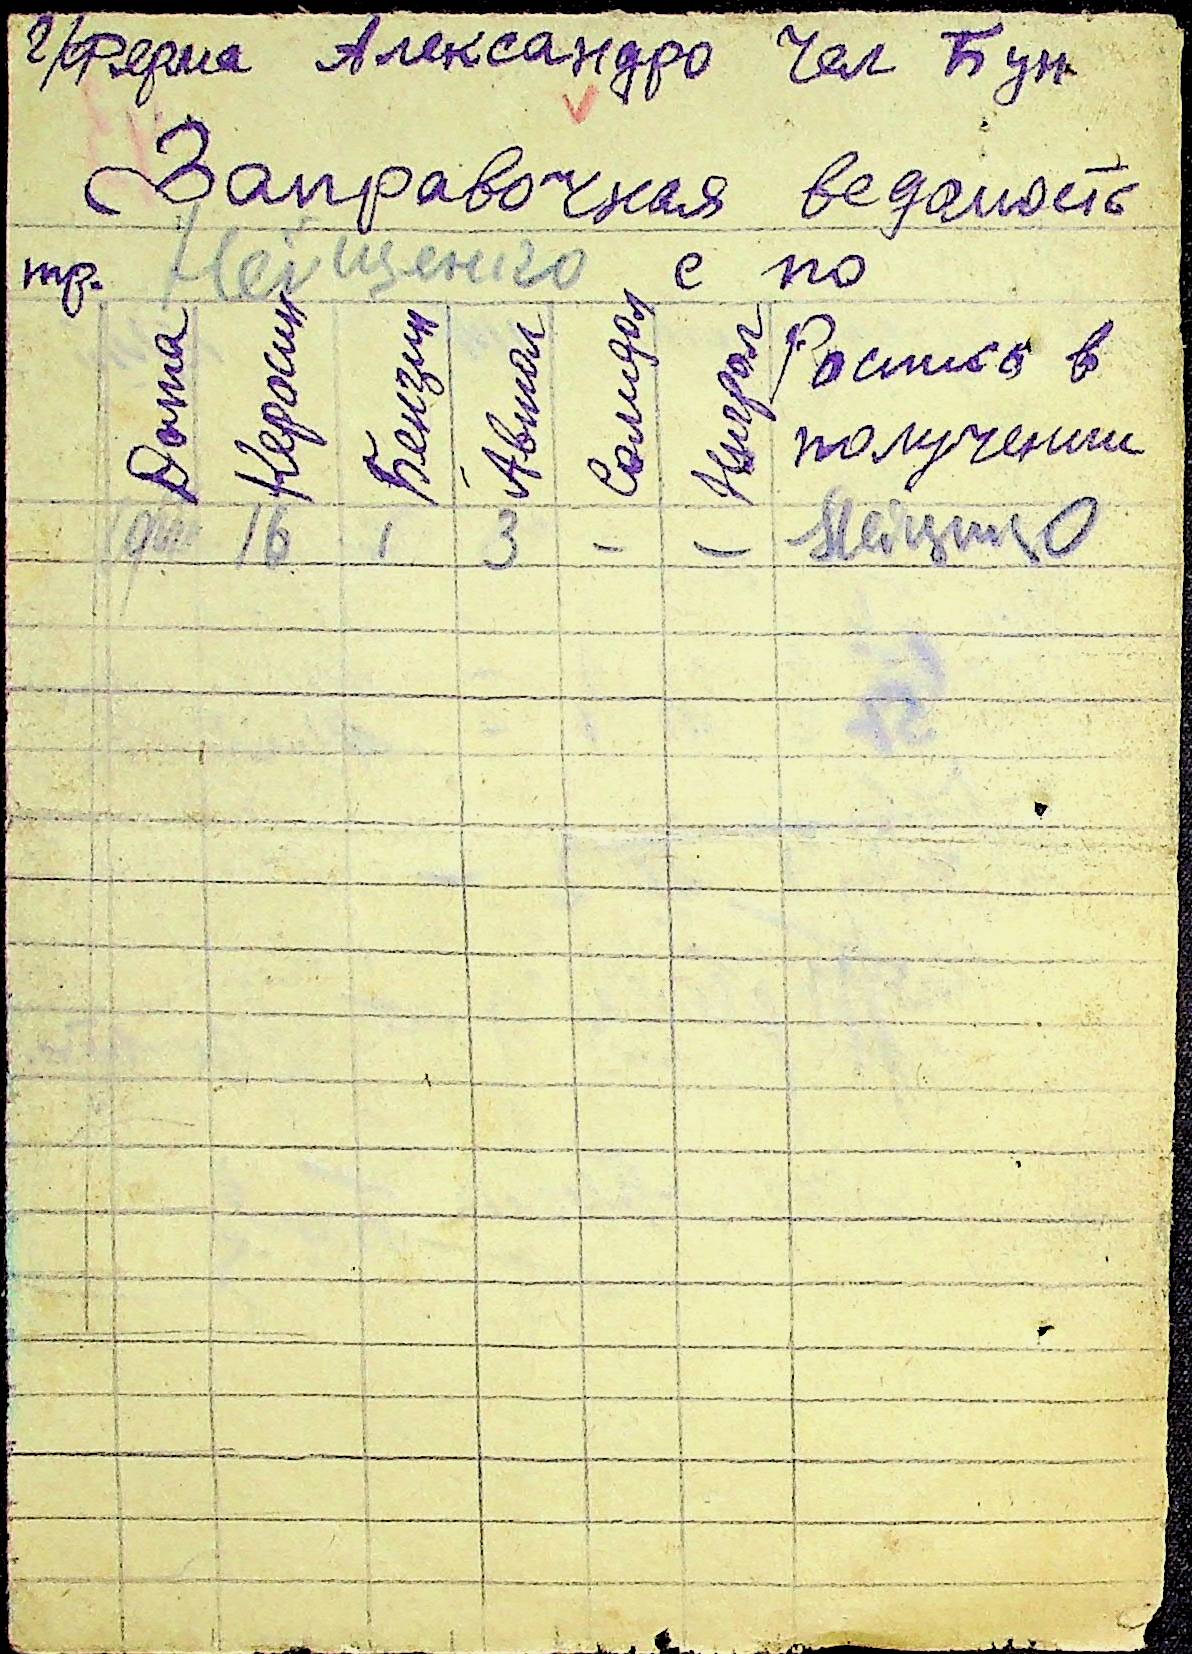 г/Ферма Александро Чел Бун
Заправочная ведомость
тр. с по
Дата Керосин Бензин Автол Солидол Нигрол Роспись в
получении
16 1 3 - -